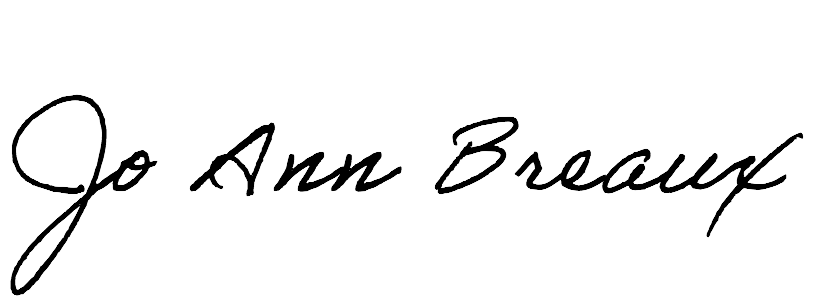 Jo Ann Breaux